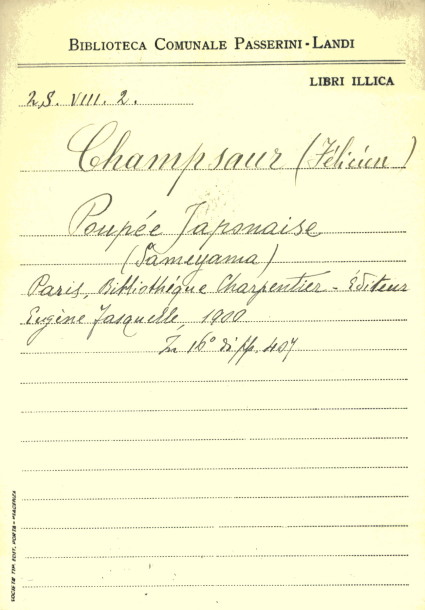 BIBLIOTECA COMUNALE PASSERINI-LANDI
LIBRI ILLICA
2S. VIII. 2.
Champsaur (Félicien)
Poupée Japonaise
(Sameyama)
Paris, Bibliothéque Charpentier - Éditeur
Eugène Fasquelle, 1900
In 16° di pp. 407
SOCIETÀ TIP. EDIT. PORTA - PIACENZA